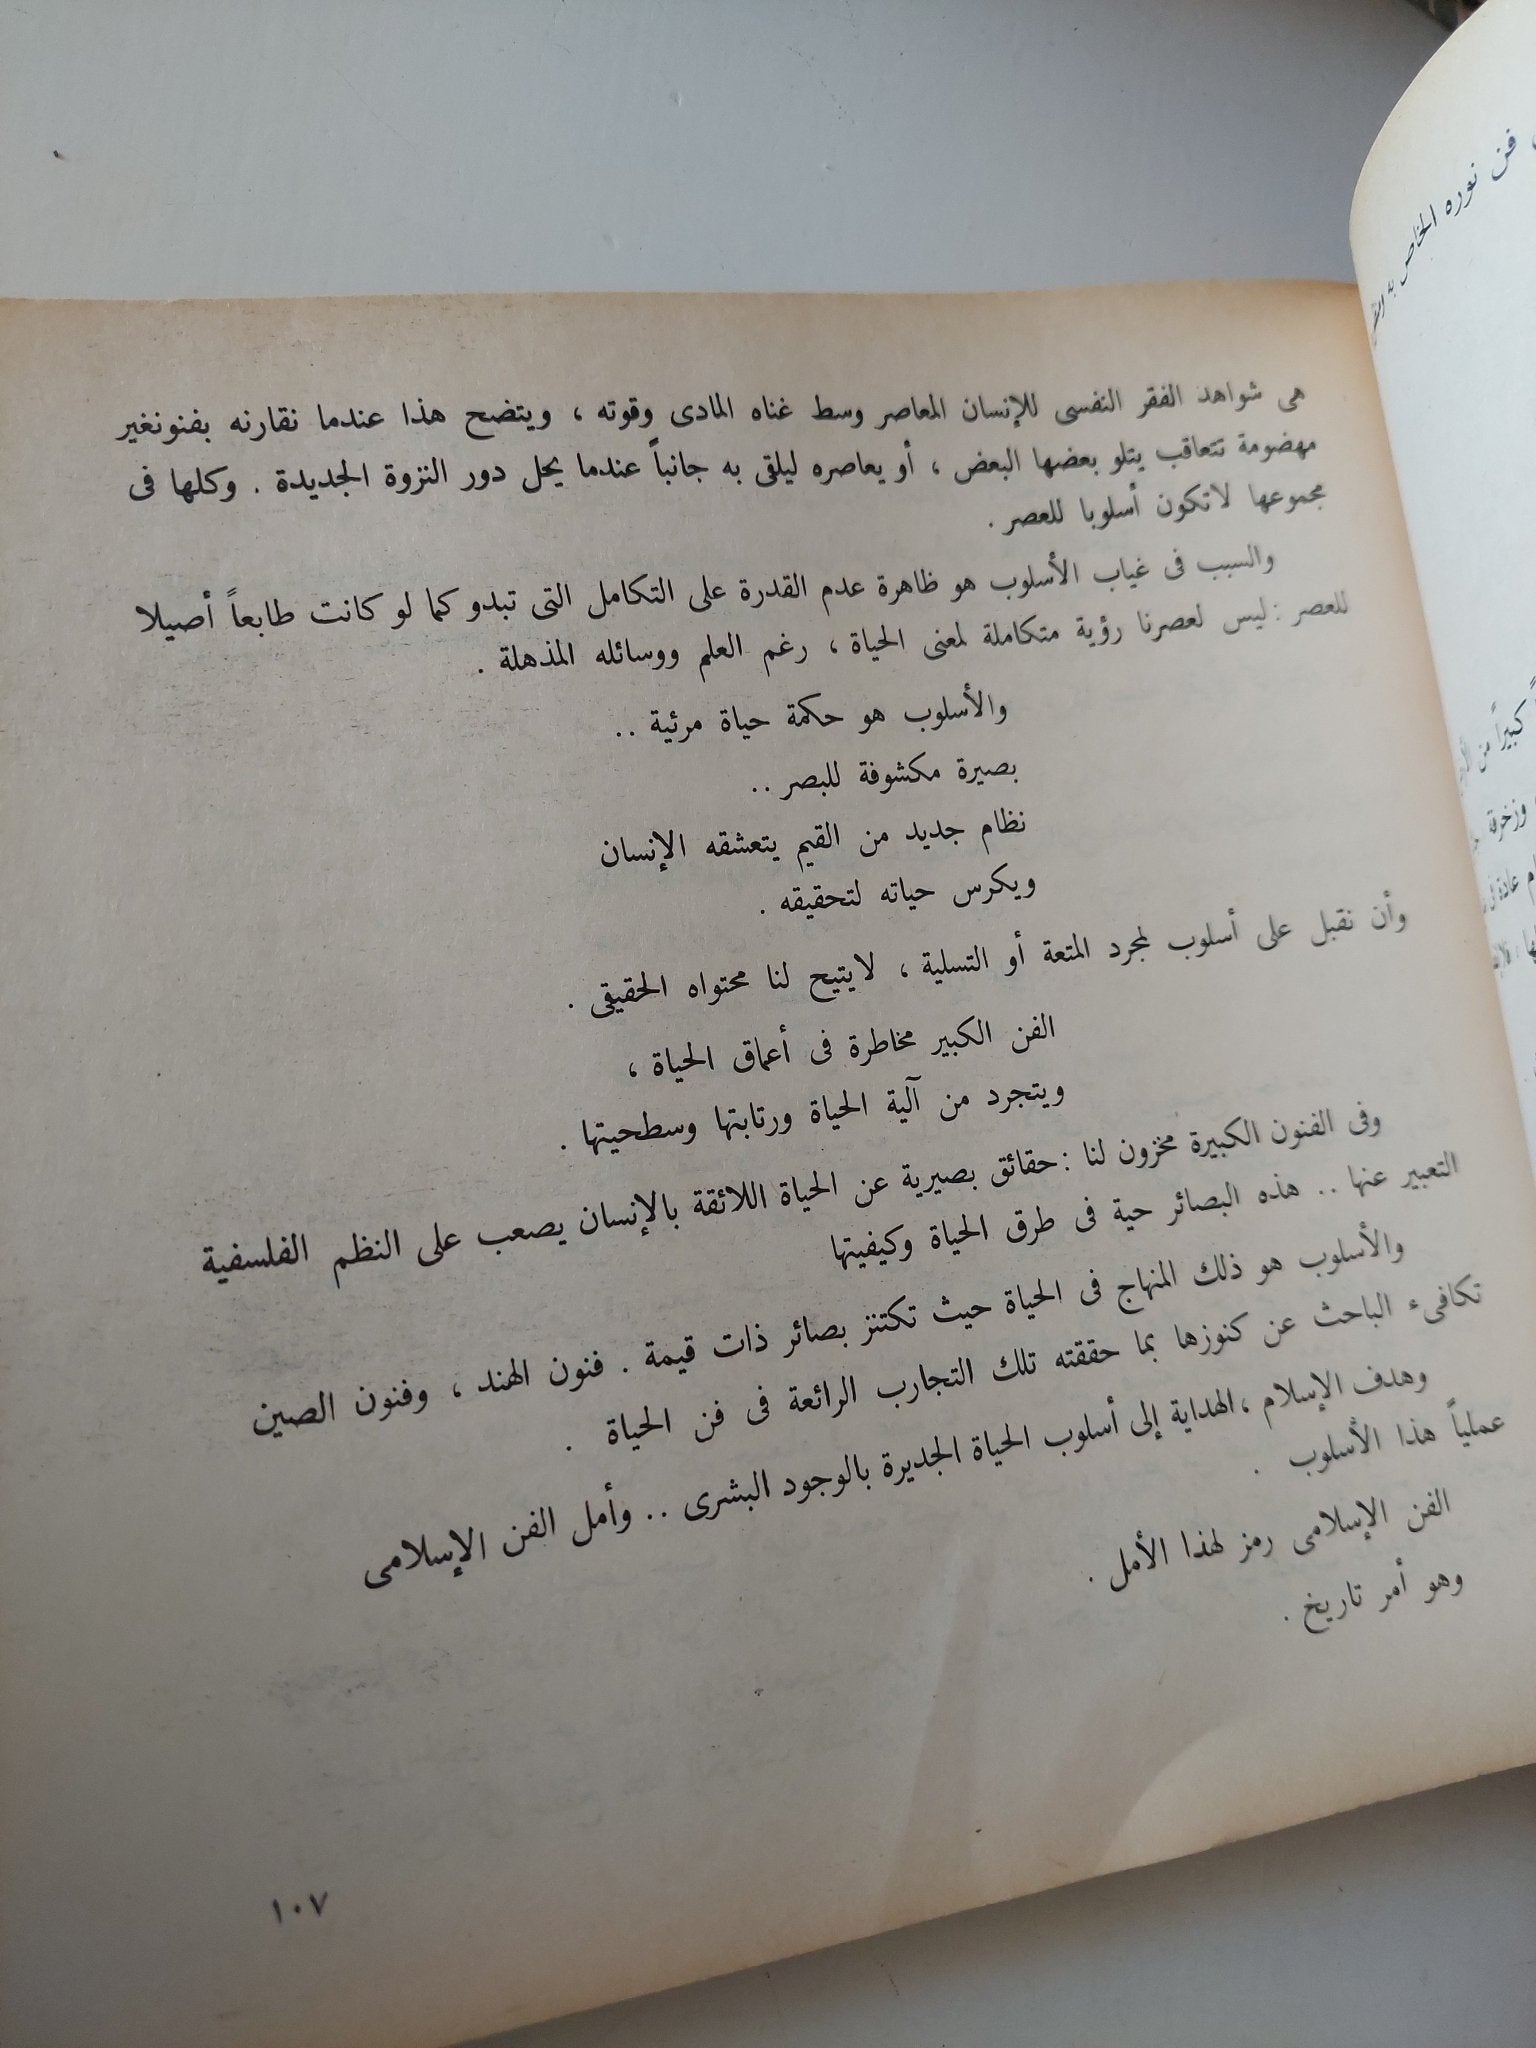 هى شواهد الفقر النفسى للإنسان المعاصر وسط غناه المادى وقوته ، ويتضح هذا عندما نقارنه بفنونغير
مهضومة تتعاقب يتلو بعضها البعض ، أو يعاصره ليلقى به جانباً عندما يحل دور النزوة الجديدة . وكلها فى
مجموعها لاتكون أسلوبا للعصر .
والسبب فى غياب الأسلوب هو ظاهرة عدم القدرة على التكامل التى تبدو كما لو كانت طابعاً أصيلا
للعصر : ليس لعصرنا رؤية متكاملة لمعنى الحياة ، رغم العلم ووسائله المذهلة .
والأسلوب هو حكمة حياة مرئية ..
بصيرة مكشوفة للبصر ..
نظام جديد من القيم يتعشقه الإنسان
ويكرس حياته لتحقيقه .
وأن نقبل على أسلوب لمجرد المتعة أو التسلية ، لايتيح لنا محتواه الحقيقى .
الفن الكبير مخاطرة فى أعماق الحياة ،
ويتجرد من آلية الحياة ورتابتها وسطحيتها .
وفى الفنون الكبيرة مخزون لنا : حقائق بصيرية عن الحياة اللائقة بالإنسان يصعب على النظم الفلسفية
التعبير عنها .. هذه البصائر حية فى طرق الحياة وكيفيتها
والأسلوب هو ذلك المنهاج فى الحياة حيث تكتنز بصائر ذات قيمة . فنون الهند ، وفنون الصين
تكافىء الباحث عن كنوزها بما حققته تلك التجارب الرائعة فى فن الحياة .
وهدف الإسلام ، الهداية إلى أسلوب الحياة الجديرة بالوجود البشرى .. وأمل الفن الإسلامى
عملياً هذا الأسلوب .
الفن الإسلامى رمز لهذا الأمل .
وهو أمر تاريخ .
١٠٧
فن نوره الخاص به
كبيراً من
وزخرفة